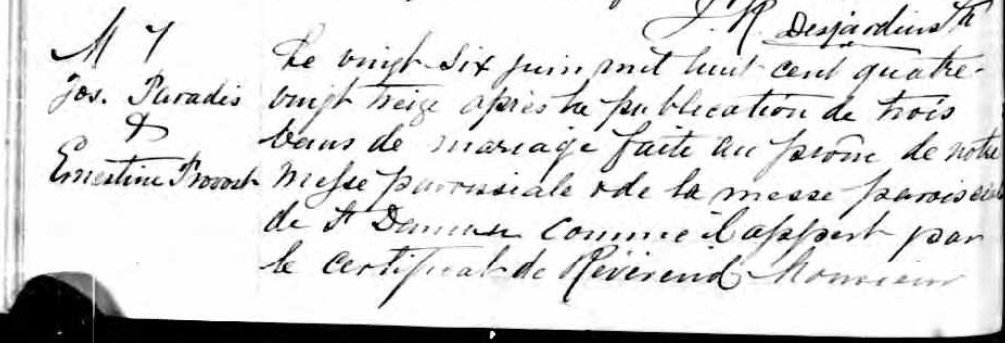 J. R. Desjardins Ptr
M 7
Jos. Paradis
&
Ernestine Provost
Le vingt six juin mil huit cent quatre-
vingt treize après la publication de trois
bans de mariage faite au prône de notre
Messe paroissiale & de la messe paroissiale
de St Damase comme il appert par
le certificat de Révérend Monsieur